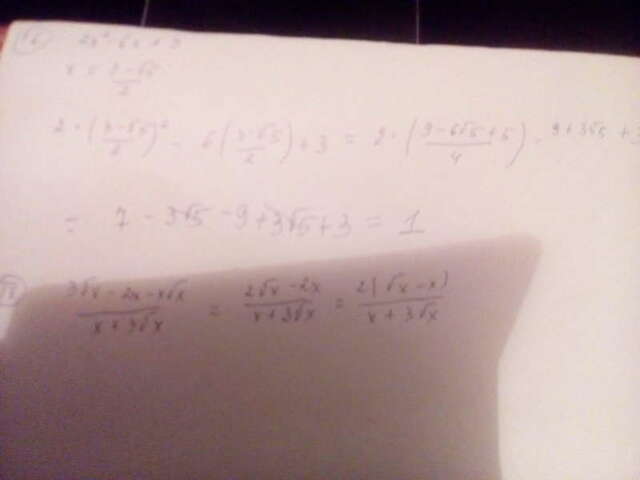 2x² - 6x + 3
x = (3-√5)/2
2 · ((3-√5)/2)² - 6((3-√5)/2) + 3 = 2 · ((9-6√5+5)/4) - 9+3√5 + 3
= 7 - 3√5 - 9 + 3√5 + 3 = 1
(3√x - 2x - x√x)/(x + 3√x) = (2√x - 2x)/(x + 3√x) = 2(√x - x)/(x + 3√x)